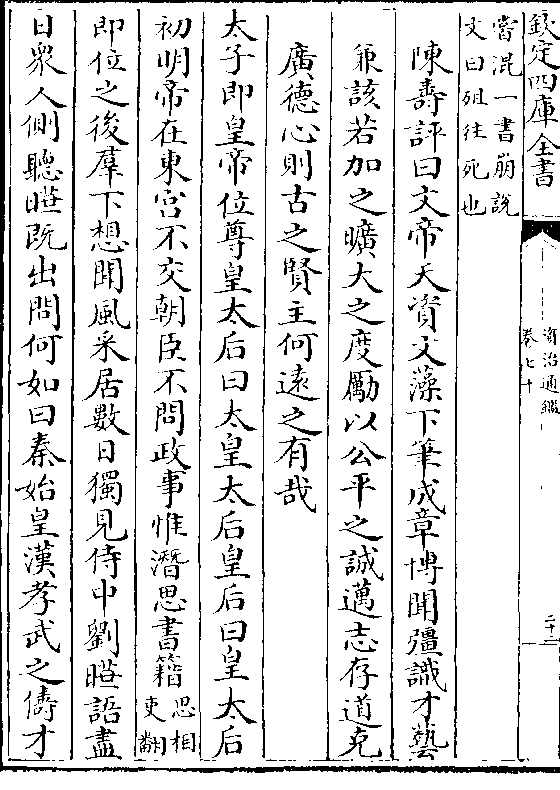 欽定四庫全書
資治通鑑
卷七十
當混一書崩說
文曰殂往死也
陳壽評曰文帝天資文藻下筆成章博聞彊識才藝
兼該若加之曠大之度勵以公平之誠邁志存道克
廣德心則古之賢主何遠之有哉
太子即皇帝位尊皇太后曰太皇太后皇后曰皇太后
初明帝在東宮不交朝臣不問政事惟潛思書籍思相吏翻
即位之後羣下想聞風采居數日獨見侍中劉曄語盡
日衆人側聽曄既出問何如曰秦始皇漢孝武之儔才